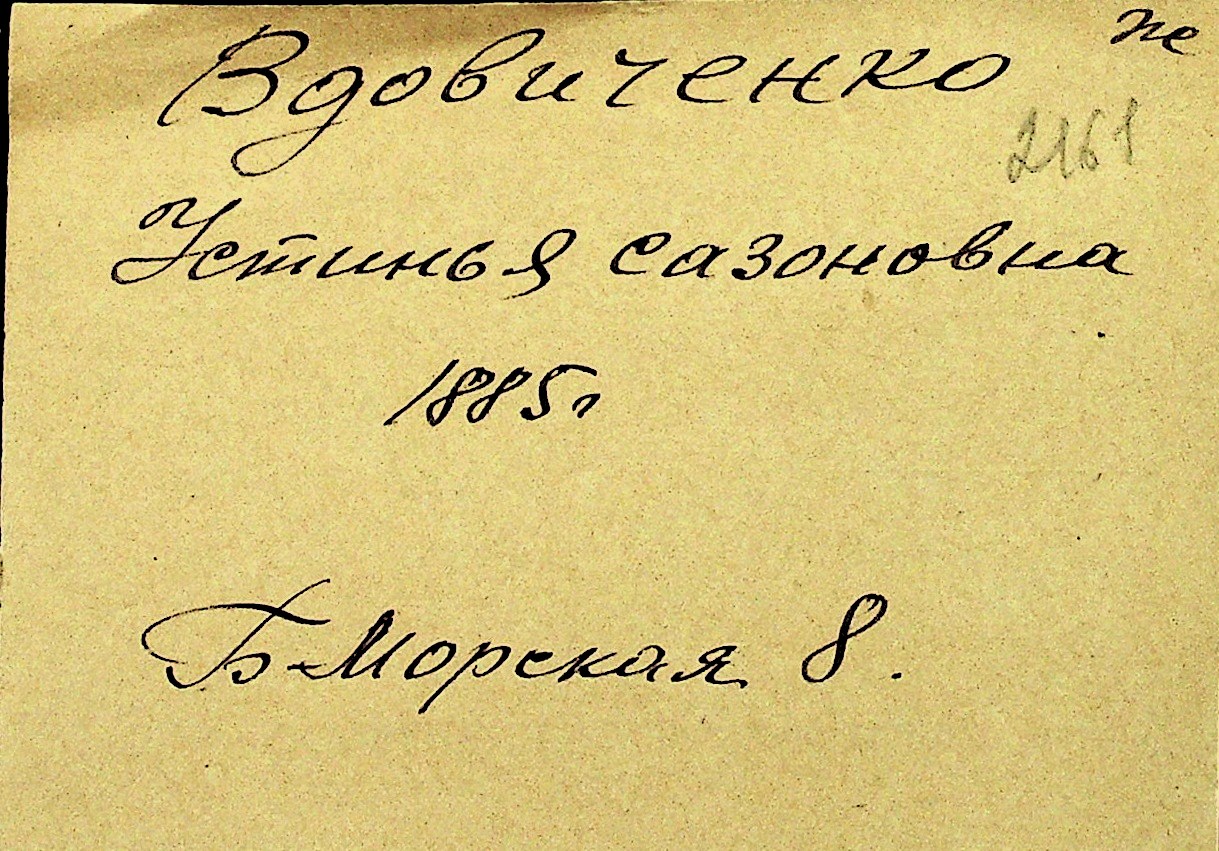 Вдовиченко
2161
Устинья сазоновна
1885г
Б-Морская 8.